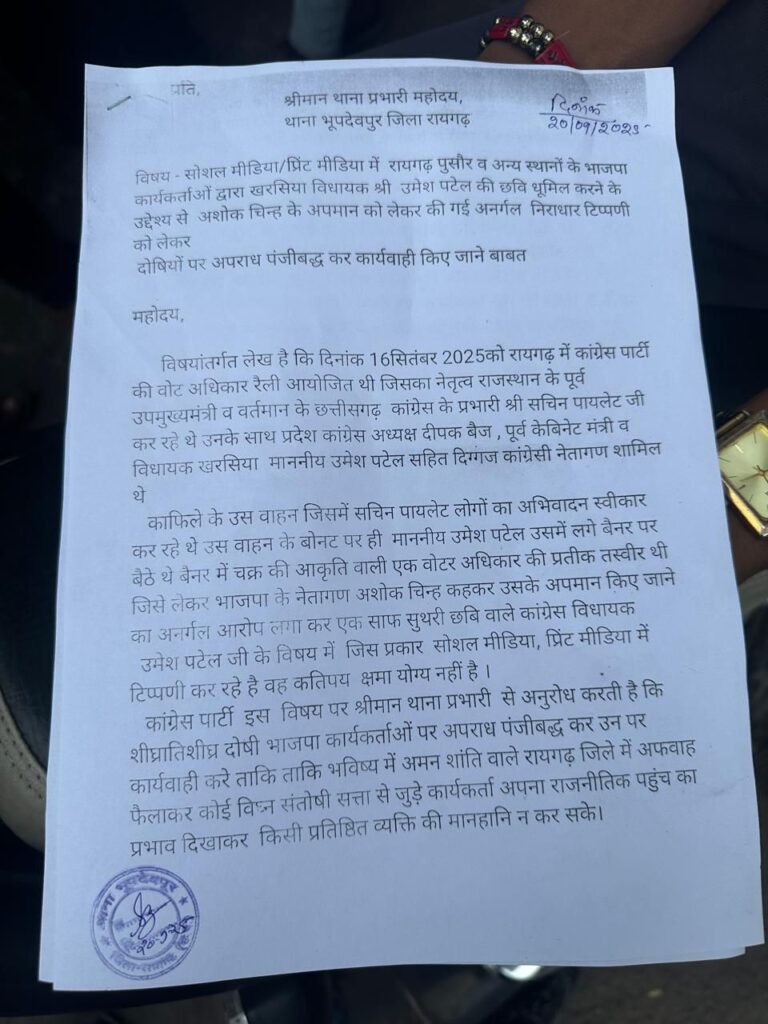 प्रति,
श्रीमान थाना प्रभारी महोदय,
थाना भूपदेवपुर जिला रायगढ़
दिनाँक
20/09/2025
विषय - सोशल मीडिया/प्रिंट मीडिया में रायगढ़ पुसौर व अन्य स्थानों के भाजपा
कार्यकर्ताओं द्वारा खरसिया विधायक श्री उमेश पटेल की छवि धूमिल करने के
उद्देश्य से अशोक चिन्ह के अपमान को लेकर की गई अनर्गल निराधार टिप्पणी
को लेकर
दोषियों पर अपराध पंजीबद्ध कर कार्यवाही किए जाने बाबत
महोदय,
विषयांतर्गत लेख है कि दिनांक 16सितंबर 2025को रायगढ़ में कांग्रेस पार्टी
की वोट अधिकार रैली आयोजित थी जिसका नेतृत्व राजस्थान के पूर्व
उपमुख्यमंत्री व वर्तमान के छत्तीसगढ़ कांग्रेस के प्रभारी श्री सचिन पायलेट जी
कर रहे थे उनके साथ प्रदेश कांग्रेस अध्यक्ष दीपक बैज , पूर्व केबिनेट मंत्री व
विधायक खरसिया माननीय उमेश पटेल सहित दिग्गज कांग्रेसी नेतागण शामिल
थे
काफिले के उस वाहन जिसमें सचिन पायलेट लोगों का अभिवादन स्वीकार
कर रहे थे उस वाहन के बोनट पर ही माननीय उमेश पटेल उसमें लगे बैनर पर
बैठे थे बैनर में चक्र की आकृति वाली एक वोटर अधिकार की प्रतीक तस्वीर थी
जिसे लेकर भाजपा के नेतागण अशोक चिन्ह कहकर उसके अपमान किए जाने
का अनर्गल आरोप लगा कर एक साफ सुथरी छबि वाले कांग्रेस विधायक
उमेश पटेल जी के विषय में जिस प्रकार सोशल मीडिया, प्रिंट मीडिया में
टिप्पणी कर रहे है वह कतिपय क्षमा योग्य नहीं है ।
कांग्रेस पार्टी इस विषय पर श्रीमान थाना प्रभारी से अनुरोध करती है कि
शीघ्रातिशीघ्र दोषी भाजपा कार्यकर्ताओं पर अपराध पंजीबद्ध कर उन पर
कार्यवाही करे ताकि ताकि भविष्य में अमन शांति वाले रायगढ़ जिले में अफवाह
फैलाकर कोई विघ्न संतोषी सत्ता से जुड़े कार्यकर्ता अपना राजनीतिक पहुंच का
प्रभाव दिखाकर किसी प्रतिष्ठित व्यक्ति की मानहानि न कर सके।
थाना भूपदेवपुर